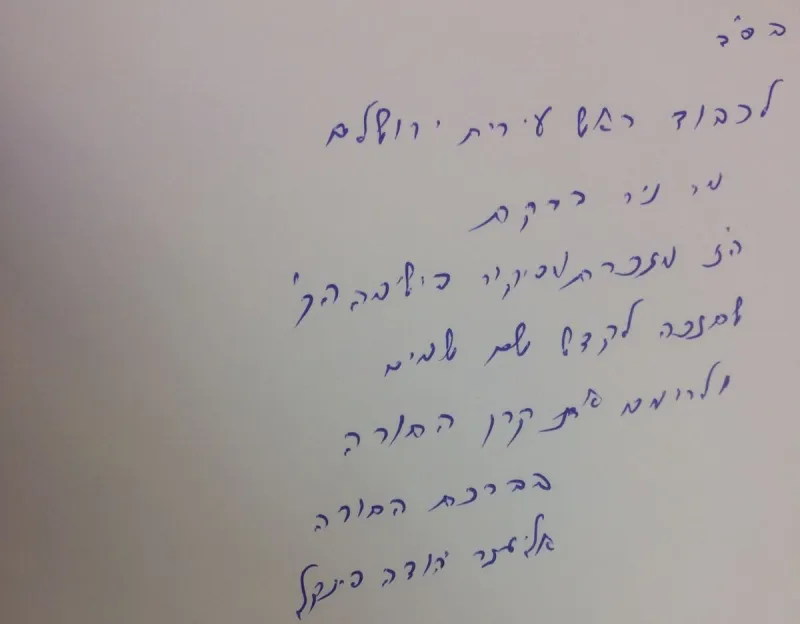 בס"ד
לכבוד ראש עירית ירושלם
מר ניר ברקת
הנ"ל מזכרת מביקור בישיבה הק'
שתזכה לקדש שם שמים
ולרומם את קרן התורה
בברכת התורה
אליעזר יהודה פינקל